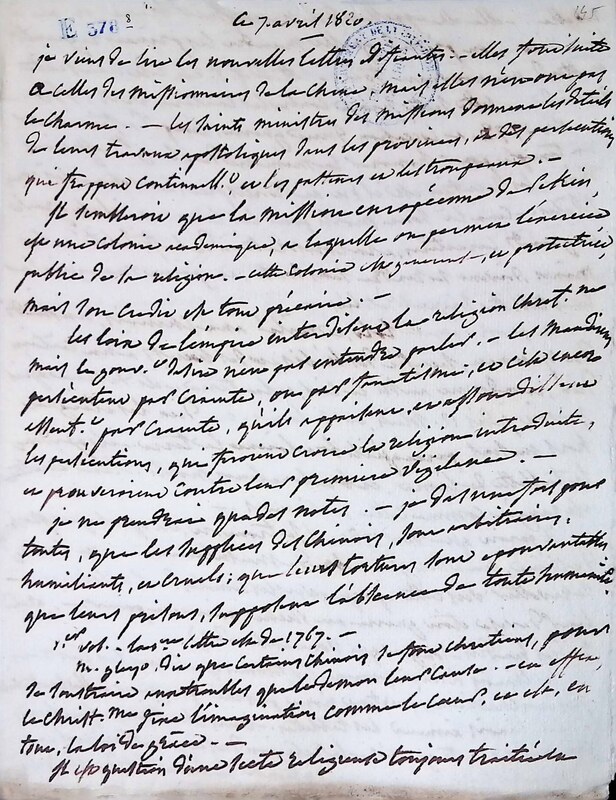 E 378 8
165
ce 7 avril 1820
je viens de lire les nouvelles lettres édifiantes. - elles font suite
a celles des missionnaires de la Chine, mais elles n'en ont pas
le charme. - Les saints ministres des missions donnent les détails
de leurs travaux apostoliques dans les provinces, et des persécutions
que frappent continuell.t et les pasteurs et les troupeaux. -
Il sembleroit que la mission européenne de Pekin,
est une colonie académique, a laquelle on permet l'exercice
public de la religion. - cette colonie est , et protectrice,
mais son credit est tout précaire. -
les loix de l'empire interdisent la religion chret. ne
mais le gouv.t desire n'en pas entendre parler. - les Mandarins
persécutent par crainte, ou par fanatisme, et c'est encore
par crainte, qu'ils appaisent, et assourdissent
les persécutions, qui feroient croire la religion introduite,
et prouveroient contre leur premiere vigilance. -
je ne prendrai que des notes. - je dis une fois pour
toutes, que les supplices des Chinois, sont arbitraires,
humiliants, et cruels; que leurs tortures sont épouvantables
que leurs prisons, supposent l'absence de toute humanité
1.er vol. - la lettre est de 1767. -
M. dit que certains chinois se font chrétiens, pour
se soustraire aux troubles que le demon leur cause. - en effet,
le Christ. me gêne l'imagination comme le cœur. et c'est, en
tout, la loi de grâce. -
Il est question d'une secte religieuse toujours traitée